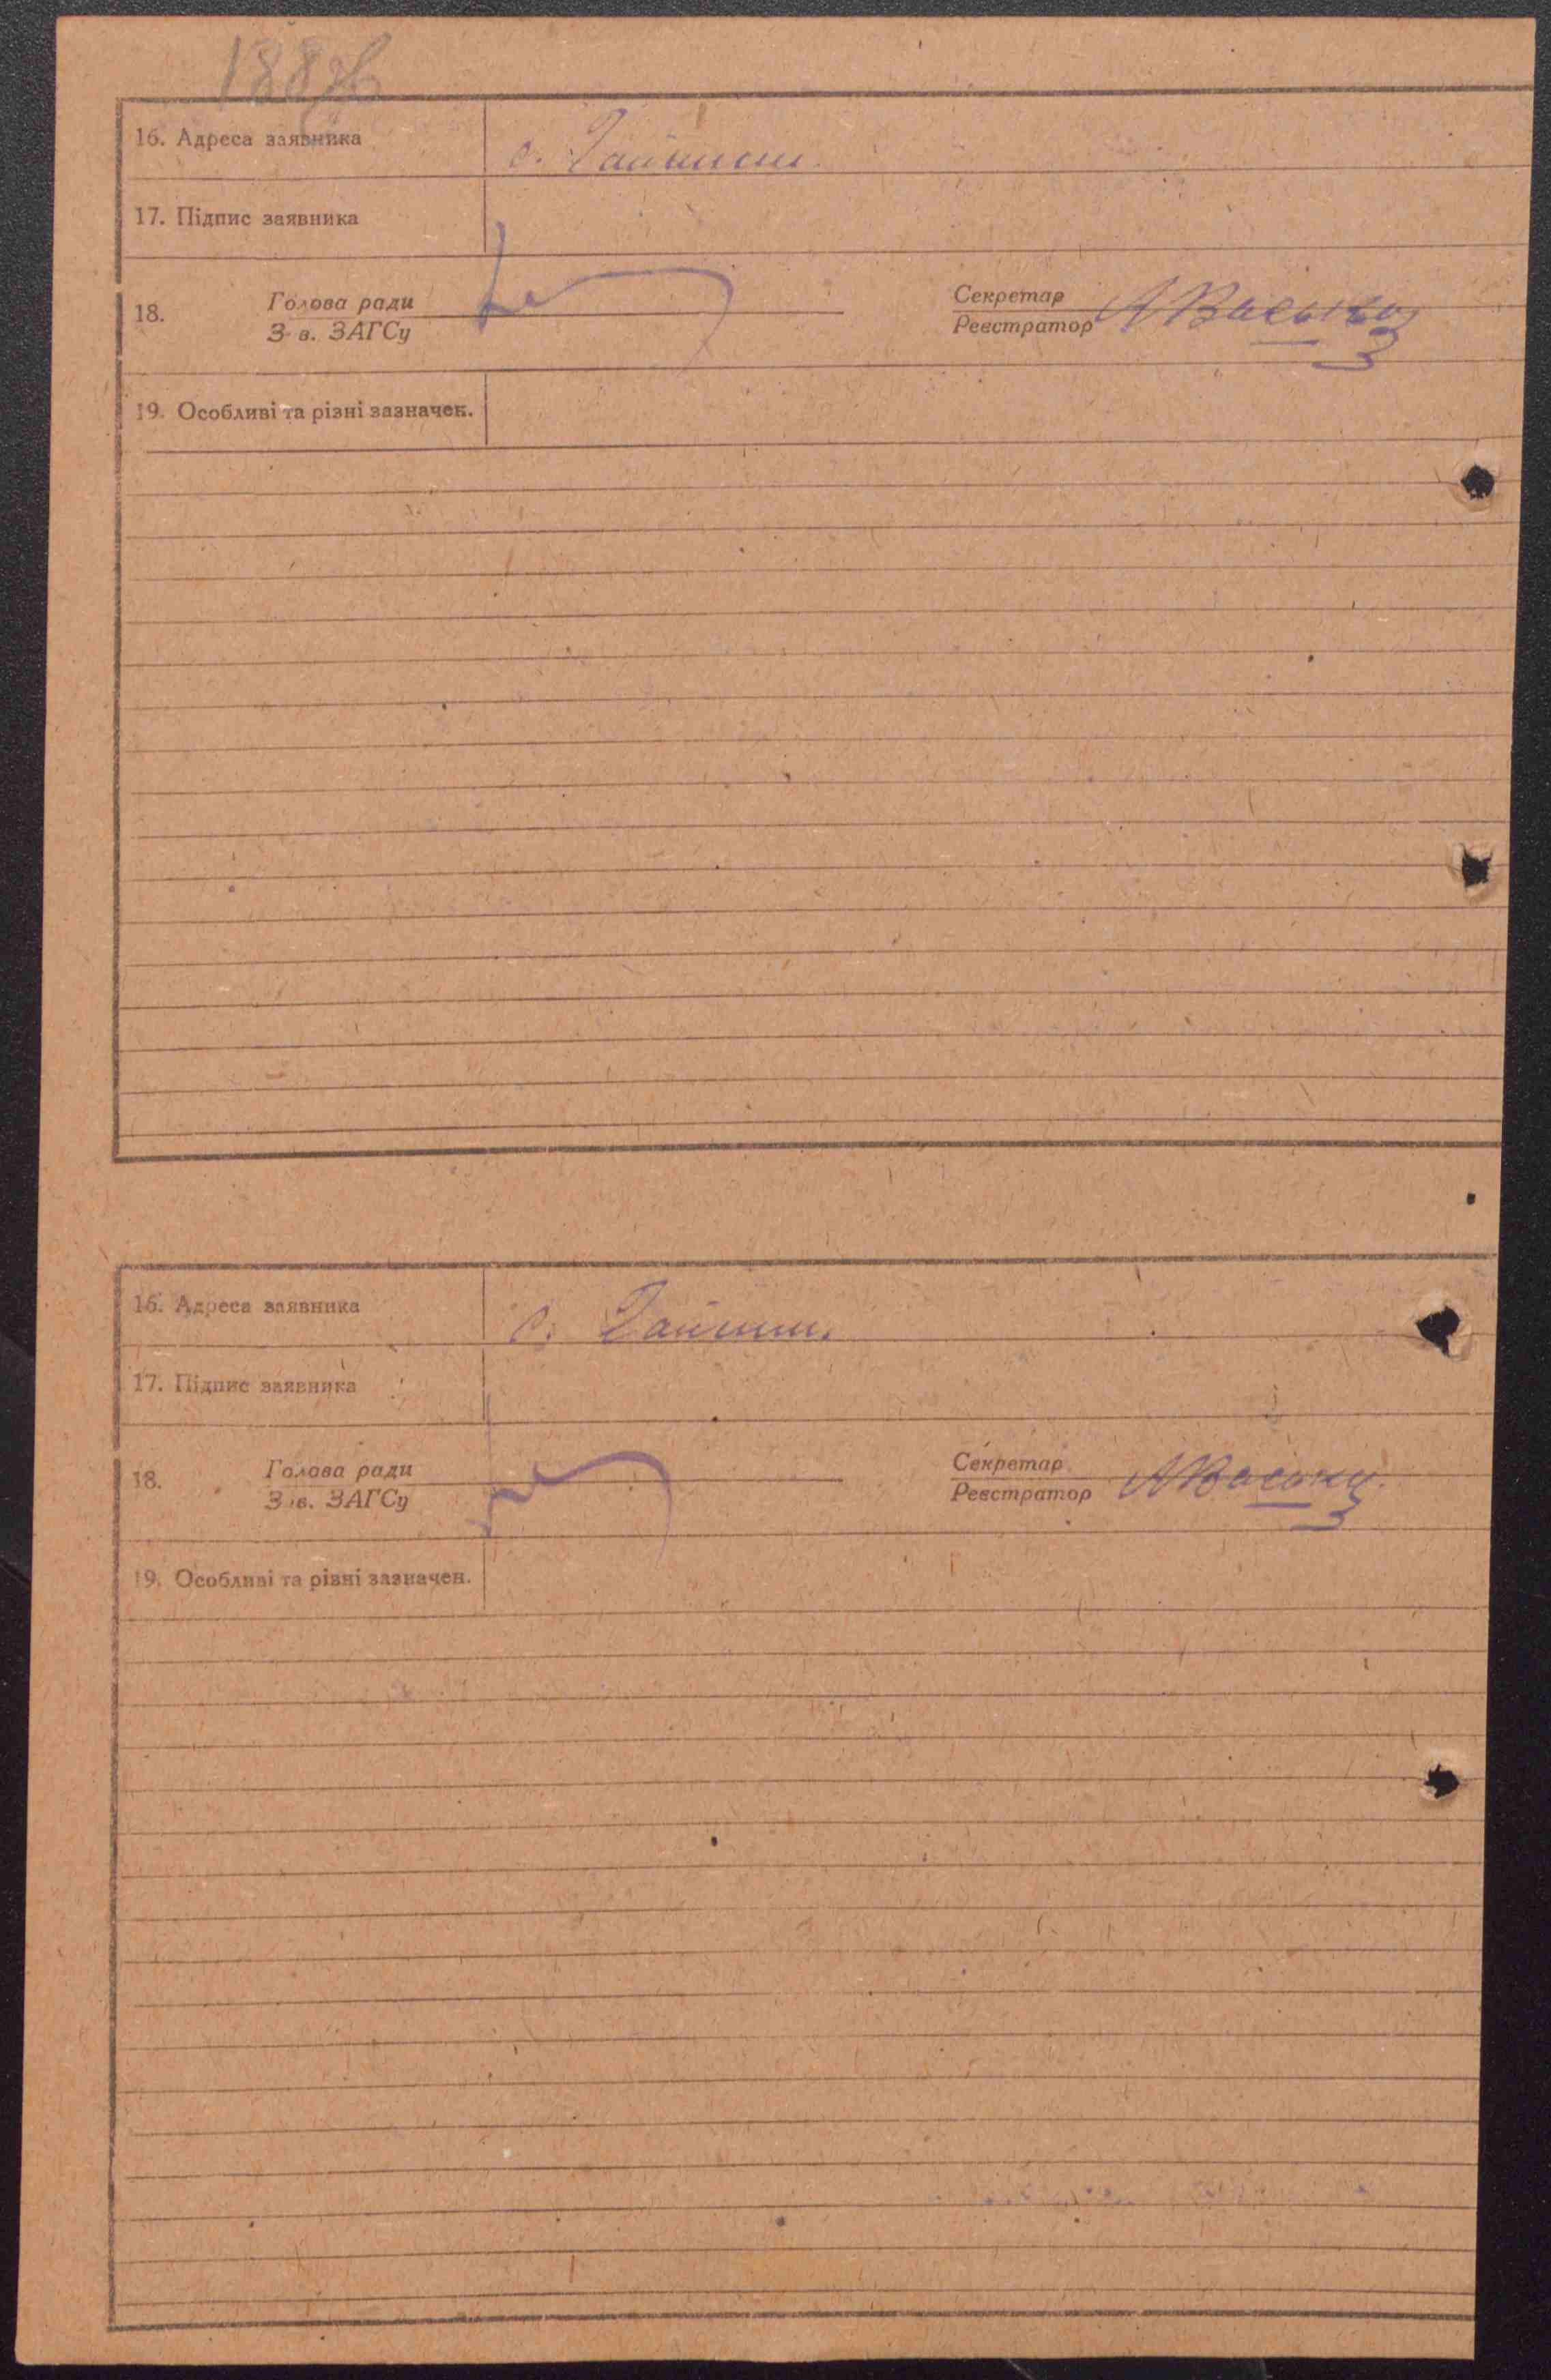 188зв
16. Адреса заявника с. Гайшин
17. Підпис заявника
18. Голова ради
З в. ЗАГСу
Секретар
Реєстратор
19. Особливі та різні зазначен.
16. Адреса заявника с. Гайшин
17. Підпис заявника
18. Голова ради
З в. ЗАГСу
Секретар
Реєстратор
19. Особливі та різні зазначен.